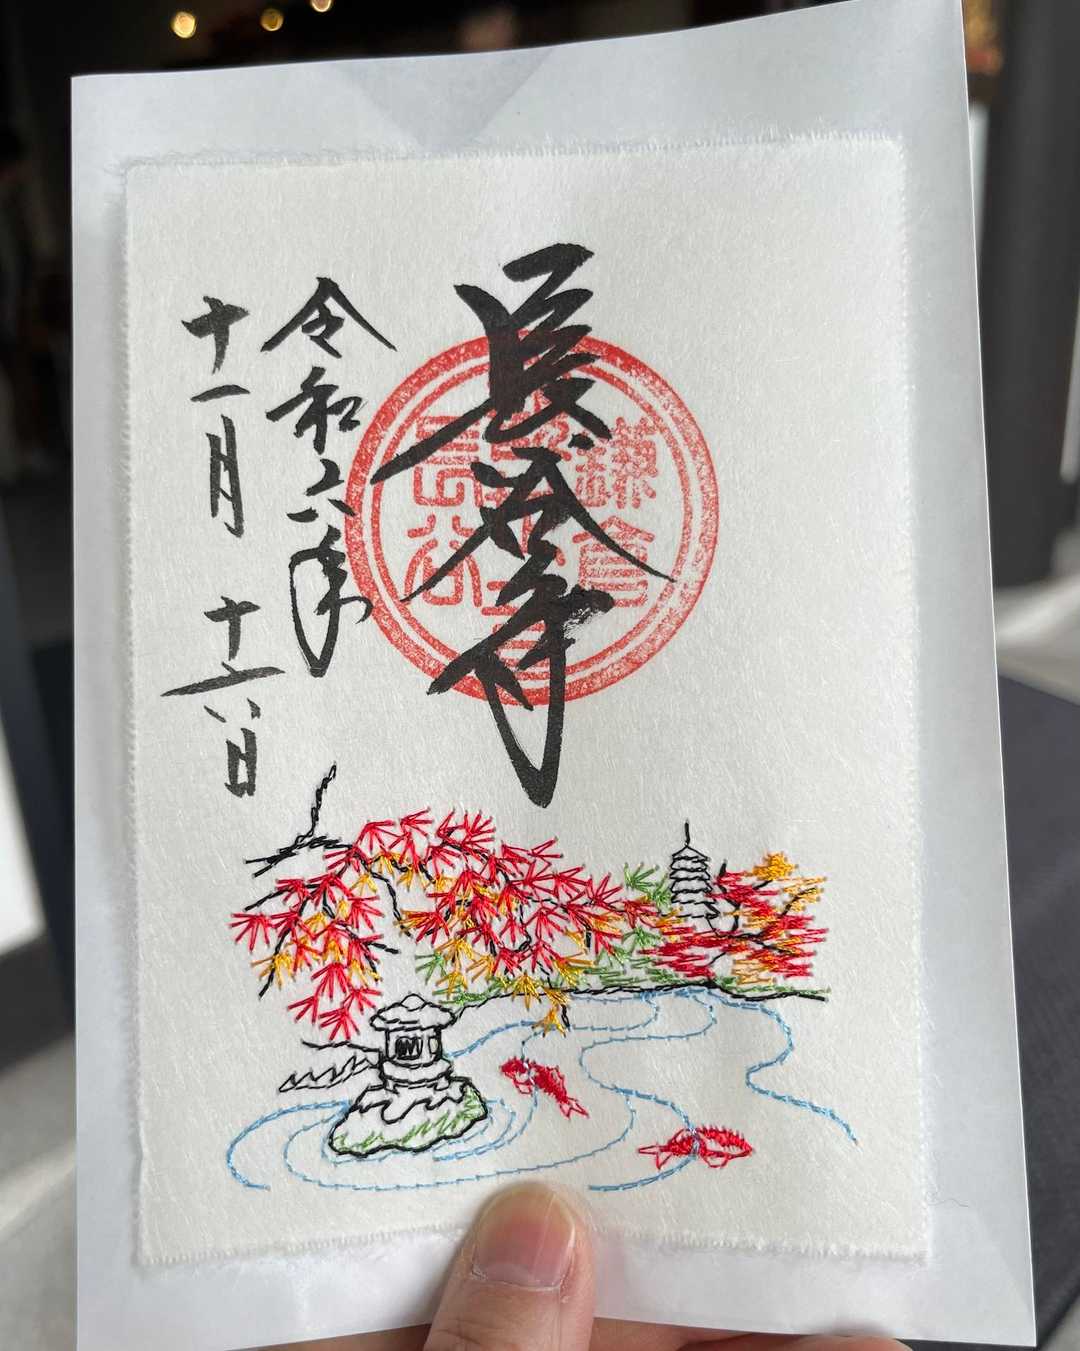 長谷寺
鎌倉
長谷
令和六年
十一月十六日